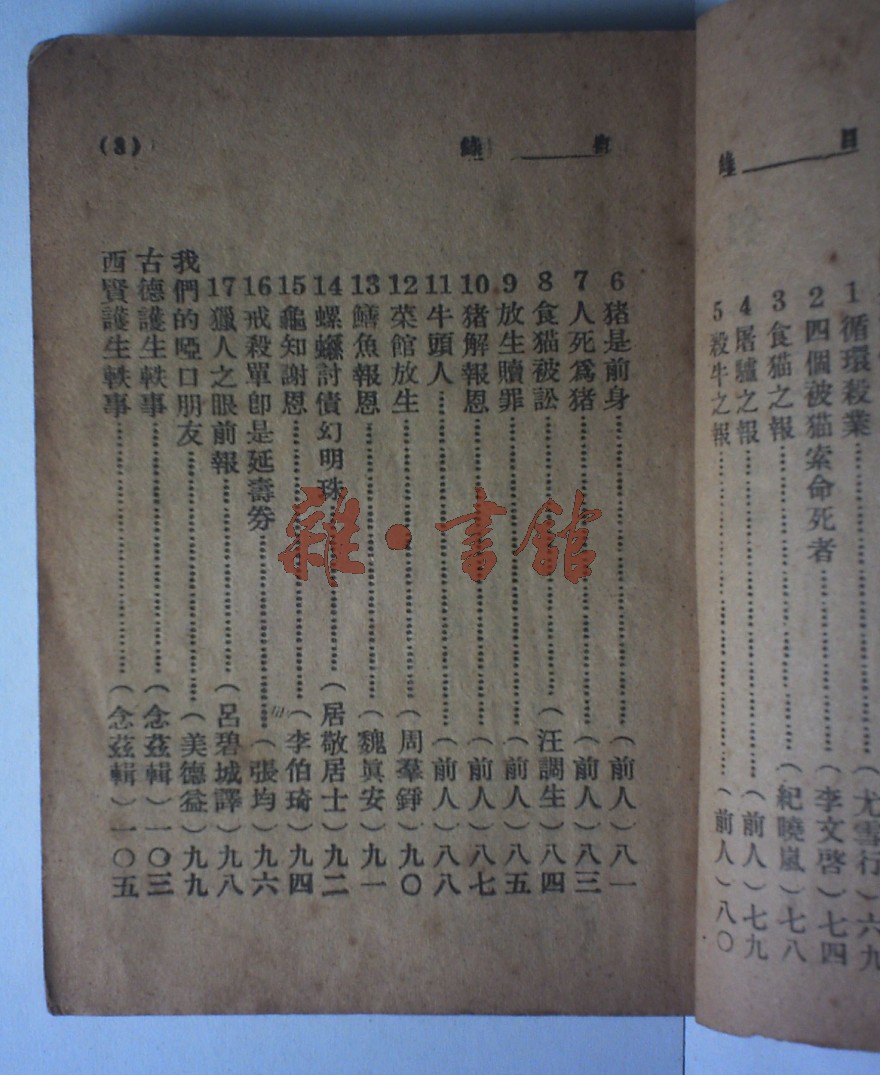 目 錄
1 循環殺業……(尤雪行)六九
2 四個被猫索命死者……(李文啓)七四
3 食猫之報……(紀曉嵐)七八
4 屠驢之報……(前人)七九
5 殺牛之報……(前人)八〇
目 錄 (3)
6 猪是前身……(前人)八一
7 人死爲猪……(前人)八三
8 食猫被訟……(汪調生)八四
9 放生贖罪……(前人)八五
10 猪解報恩……(前人)八七
11 牛頭人……(前人)八八
12 菜館放生……(周羣錚)九〇
13 鱔魚報恩……(魏眞安)九一
14 螺螄討債幻明珠……(居敬居士)九二
15 龜知謝恩……(李伯琦)九四
16 戒殺單卽是延壽券……(張均)九六
17 獵人之眼前報……(呂碧城譯)九八
我們的啞口朋友……(美德益)九九
古德護生軼事……(念茲輯)一〇三
西賢護生軼事……(念茲輯)一〇五
雜·書館